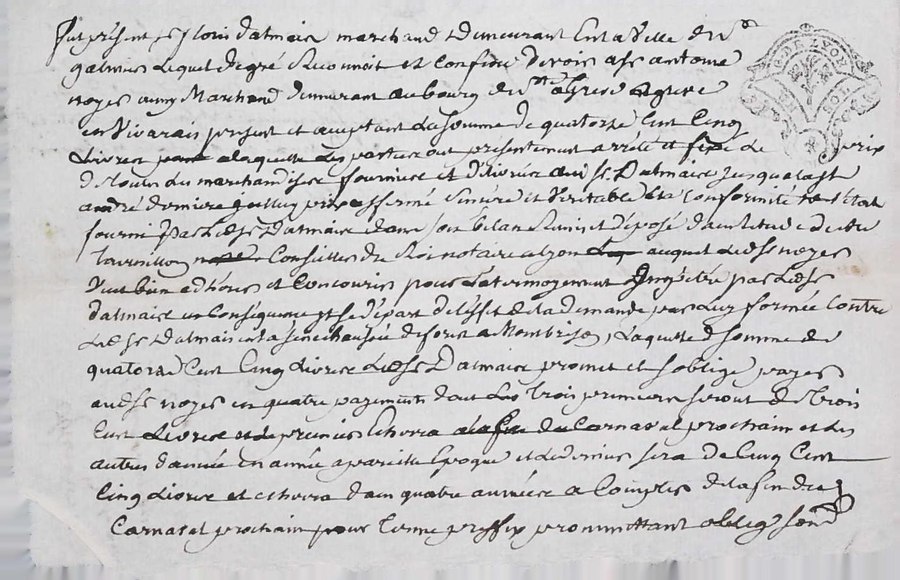 fut présent sr floris dalmais marchand & demeurant en la ville de st
galmier lequel de gré reconnoit et confesse devoir a sr antoine
noyer aussy Marchand demeurant au bourg de st
en Vivarais présent et acceptant la somme de quatorze Cent Cinq
Livres a laquelle les parties ont présentement arrêté et fixé le prix
de toutes les marchandises fournies et délivrées aud sr Dalmais jusqua la st
andré dernière affirmé Sincère et Véritable et a conformité de l'état
fourni par led sr dalmais dans son bilan Remis et déposé dans l'étude de Me
tournillon Conseiller du Roi notaire a lyon auquel led sr noyer
Veut bien adhérer et Concourir pour L'attermoyement par led sr
dalmais en Conséquence et se départ de l'effet de la demande par Luy formée Contre
Led sr Dalmais en la sénéchaussée de forest a Montbrison, Laquelle de somme de
quatorze Cent Cinq Livres Led sr Dalmaire promet et s'oblige payer
aud sr noyer en quatre payements dont Les Trois premiers seront de Trois
Cent Livres et le premier Echerra du Carnaval prochain et les
autres d'année en année a pareille Epoque et le dernier sera de Cinq Cent
Cinq Livres et echerra dans quatre années a Compter de la fin du
Carnaval prochain pour terme préfix promettant oblig
DE LYON
SOL